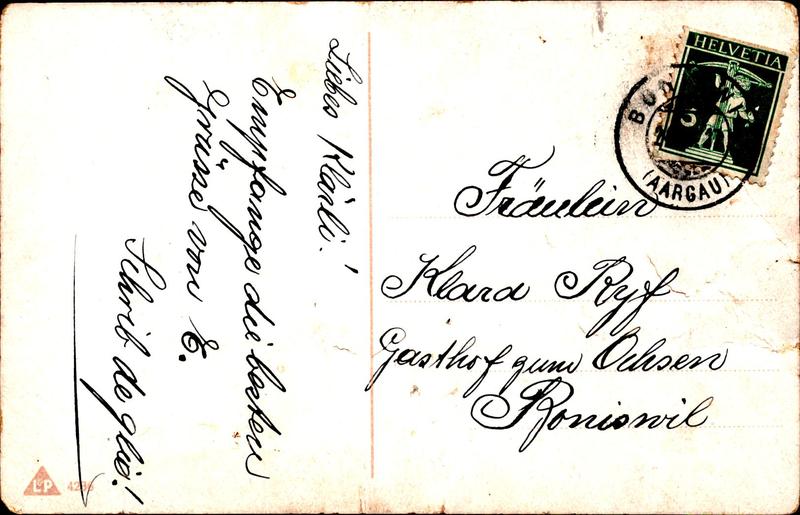 Liebes Klärli!
Empfange die besten
Grüsse von E.
Schrib de glië!
HELVETIA
5
(AARGAU)
Fräulein
Klara Ryf
Gasthof zum Ochsen
Boniswil
L&P